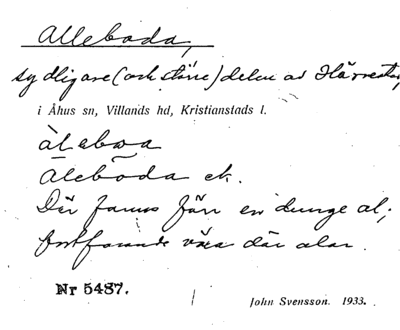 Alleboda,
sydligare (och större) delen av Härnestad,
i Åhus sn, Villands hd, Kristianstads l.
àleboa
Ālebōda ek.
Där fanns förr en dunge al;
fortfarande växa där alar.
Nr 5487.
John Svensson. 1933.